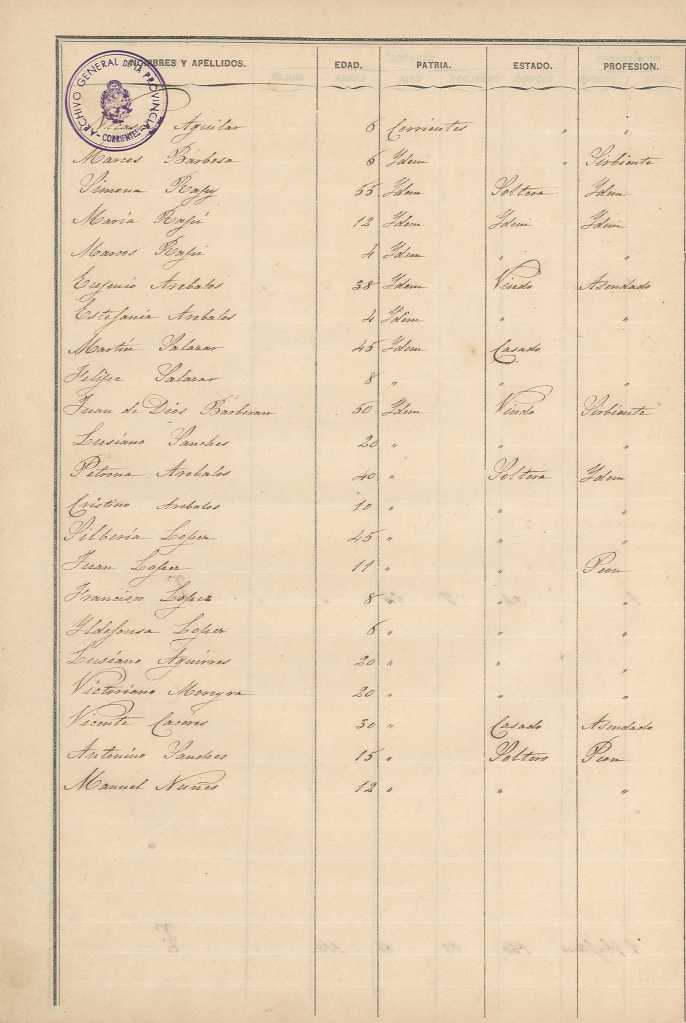 NOMBRES Y APELLIDOS. EDAD. PATRIA. ESTADO. PROFESION.
ARCHIVO GENERAL DE LA PROVINCIA - CORRIENTES -
Aguilar 6 Corrientes " "
Marcos Barbosa 6 Ydem " Sirbiente
Simona 55 Ydem Soltera Ydem
Maria 12 Ydem Ydem Ydem
Marcos 4 Ydem " "
Eugenio Arebalos 38 Ydem Viudo Asendado
Estefania Arebalos 4 Ydem " "
Martin Salazar 45 Ydem Casado "
Felipe Salazar 8 " " "
Juan de Dios Barberan 50 Ydem Viudo Sirbiente
Lusiano Sanches 20 " " "
Petrona Arebalos 40 " Soltera Ydem
Cristino Arebalos 10 " " "
Silberia Lopez 45 " " "
Juan Lopez 11 " " Peon
Francisco Lopez 8 " " "
Yldefonsa Lopez 6 " " "
Lusiano Aguirres 20 " " "
Victoriano Mereyra 20 " " "
Vicente Caceres 30 " Casado Asendado
Antonino Sanches 15 " Soltero Peon
Manuel Nuñes 12 " " "